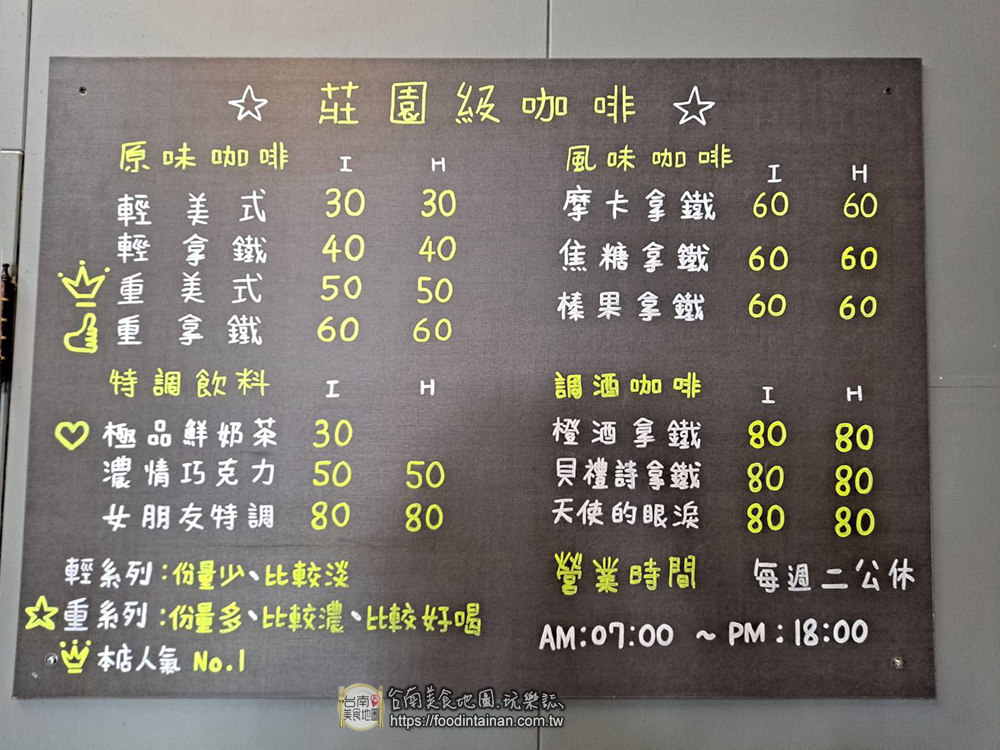 ☆ 莊園級咖啡 ☆
原味咖啡 I H
輕美式 30 30
輕拿鐵 40 40
重美式 50 50
重拿鐵 60 60
特調飲料 I H
極品鮮奶茶 30
濃情巧克力 50 50
女朋友特調 80 80
輕系列:份量少、比較淡
☆重系列:份量多、比較濃、比較好喝
本店人氣 No.1
風味咖啡 I H
摩卡拿鐵 60 60
焦糖拿鐵 60 60
榛果拿鐵 60 60
調酒咖啡 I H
橙酒拿鐵 80 80
貝禮詩拿鐵 80 80
天使的眼淚 80 80
營業時間 每週二公休
AM:07:00 ~ PM:18:00
台南美食地圖
台南美食地圖.玩樂誌
https://foodintainan.com.tw